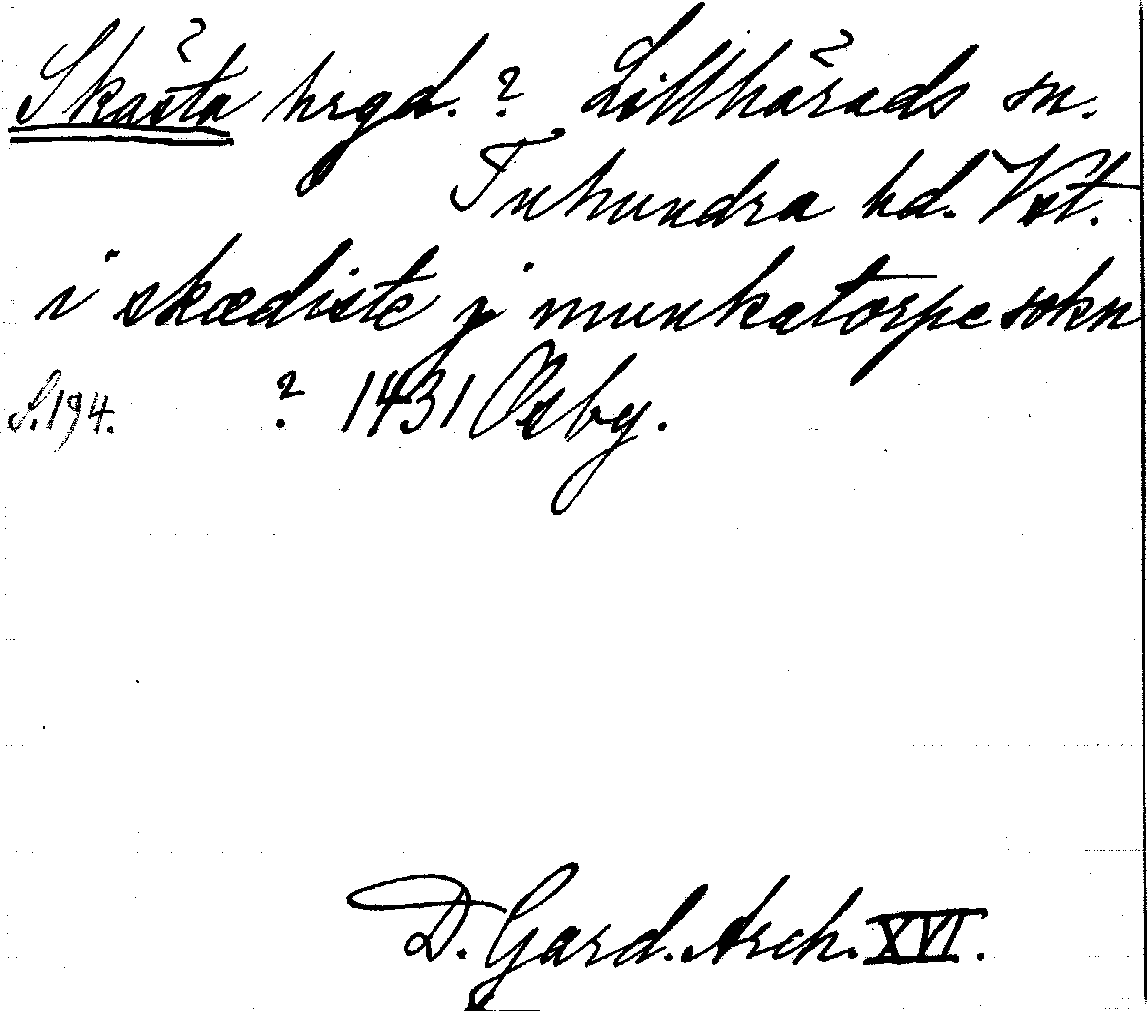 Skästa hrgd. ? Lillhärads sn.
Tuhundra hd. Vstm.
i skædiste j munkatorpe sokn
S. 194. ? 1431 Orby.
D. Gard. Arch. XVI.